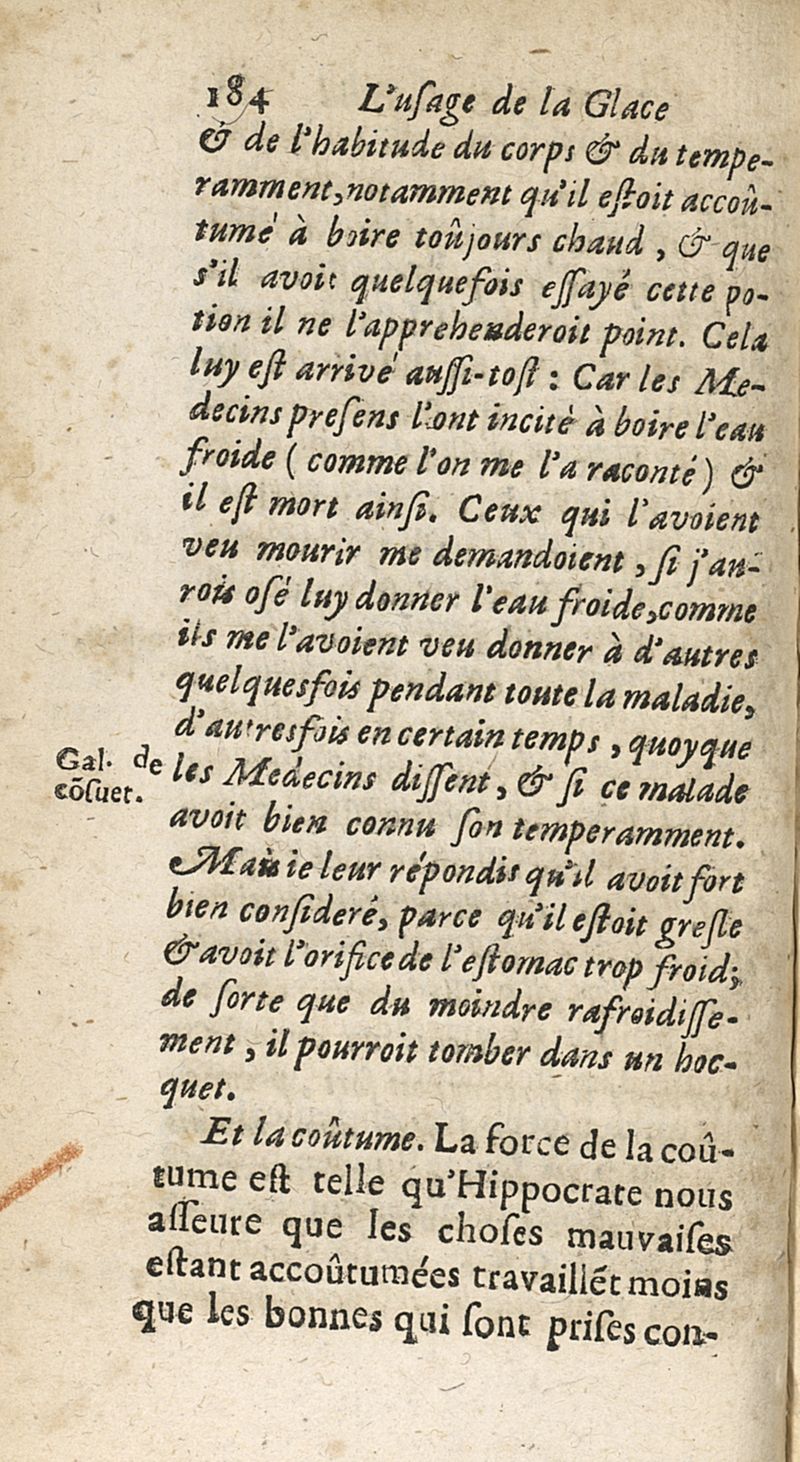 184 L'uſage de la Glace
& de l'habitude du corps & du tempe-
ramment, notamment qu'il eſtoit accoû-
tumé à boire toûjours chaud, & que
s'il avoit quelquefois eſſayé cette po-
tion il ne l'apprehenderoit point. Cela
luy eſt arrivé auſſi-toſt : Car les Me-
decins preſens l'ont incité à boire l'eau
froide ( comme l'on me l'a raconté ) &
il eſt mort ainſi. Ceux qui l'avoient
veu mourir me demandoient, ſi j'au-
rois oſé luy donner l'eau froide, comme
ils me l'avoient veu donner à d'autres
quelquesfois pendant toute la maladie,
d'autresfois en certain temps, quoyque
Gal. de
cõſuet.
les Medecins diſſent, & ſi ce malade
avoit bien connu ſon temperamment.
Mais ie leur répondis qu'il avoit fort
bien conſideré, parce qu'il eſtoit greſle
& avoit l'orifice de l'eſtomac trop froid;
de ſorte que du moindre rafroidiſſe-
ment, il pourroit tomber dans un hoc-
quet.
Et la coûtume. La force de la coû-
tume eſt telle qu'Hippocrate nous
aſſeure que les choſes mauvaiſes
eſtant accoûtumées travaillẽt moins
que les bonnes qui ſont priſes con-